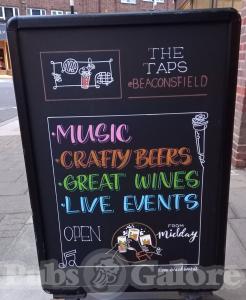 THE
TAPS
@BEACONSFIELD
· MUSIC
· CRAFTY BEERS
· GREAT WINES
· LIVE EVENTS
OPEN
FROM
Midday
Pubs Galore